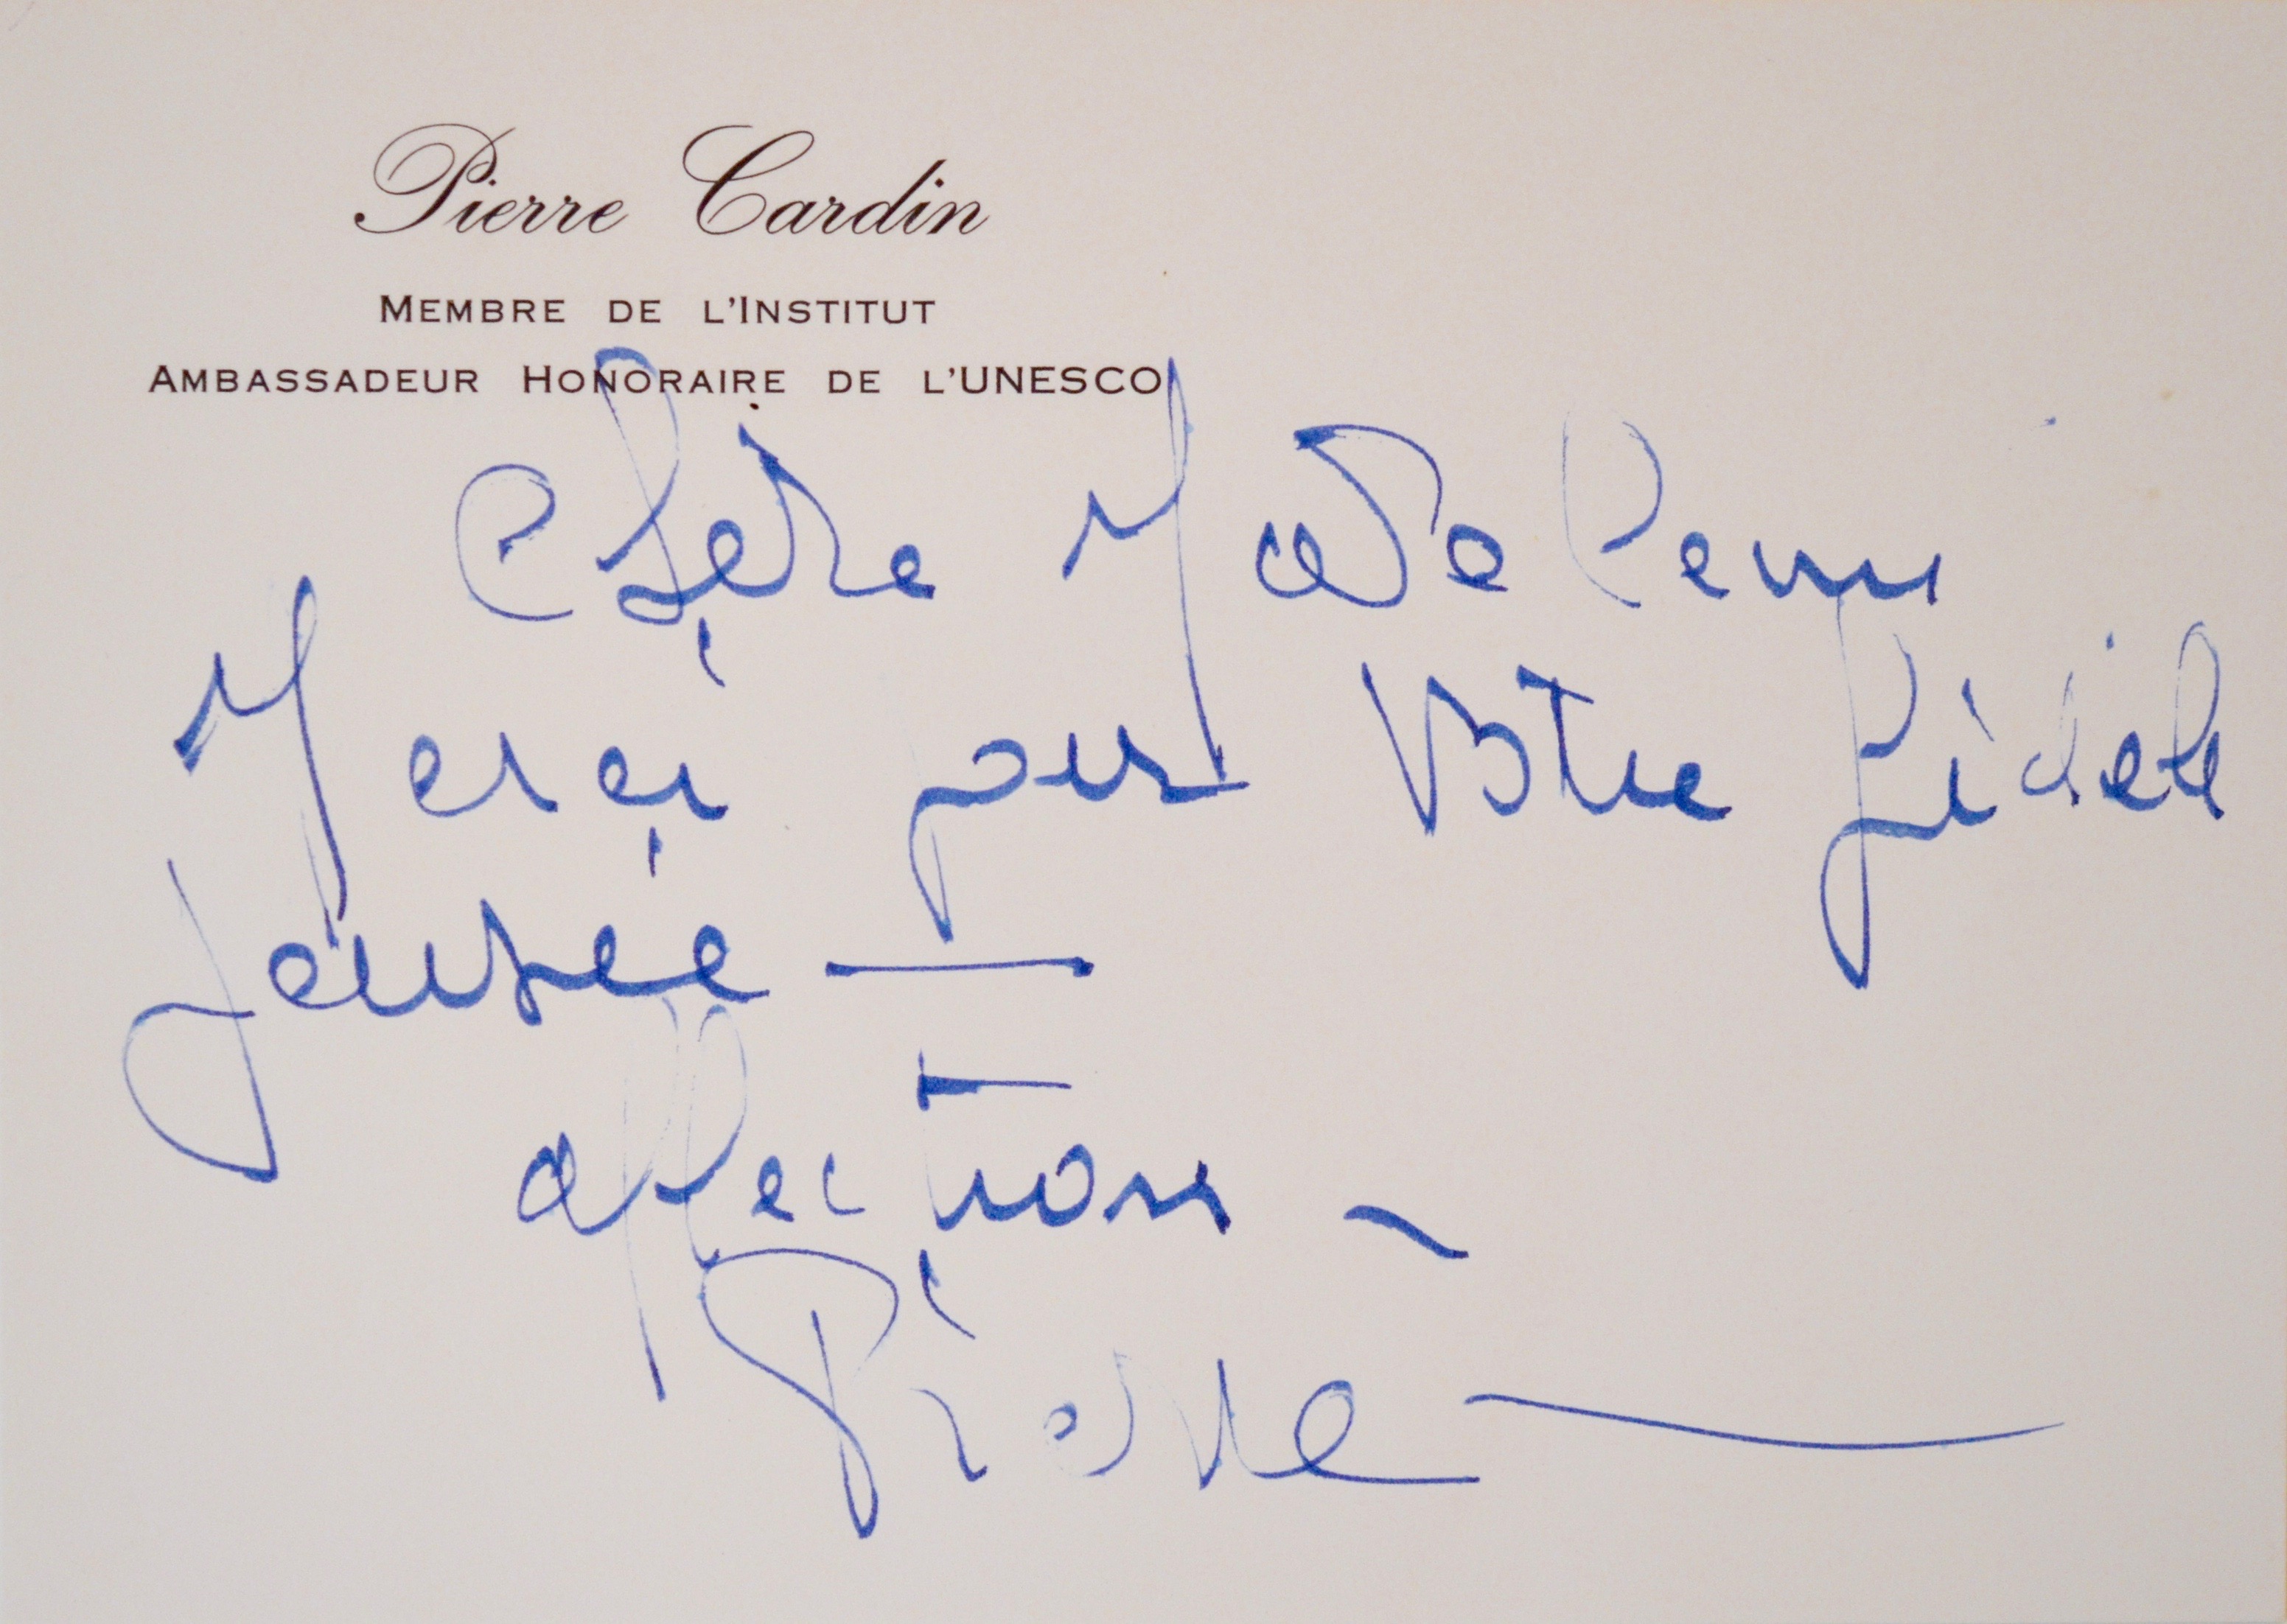 Pierre Cardin
MEMBRE DE L'INSTITUT
AMBASSADEUR HONORAIRE DE L'UNESCO
Chère
Merci pour votre fidèle
pensée —
affection ~
Pierre